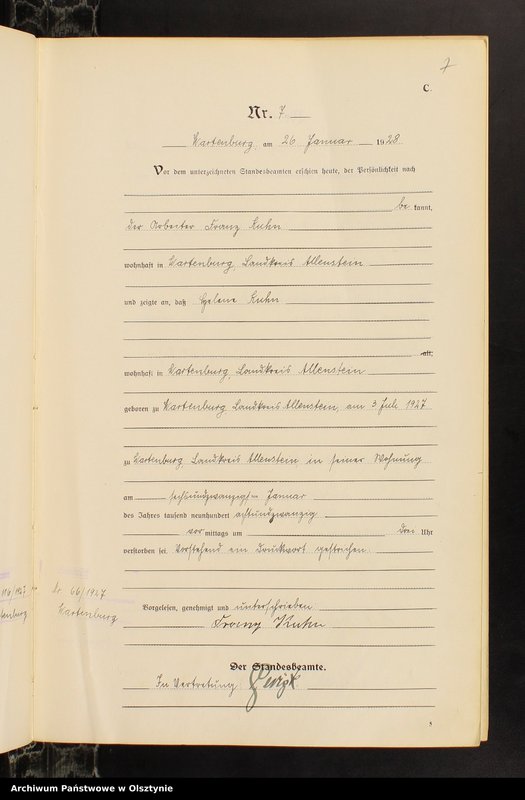 7
C.
Nr. 7
Wartenburg am 26 Januar 1928
Vor dem unterzeichneten Standesbeamten erschien heute, der Persönlichkeit nach
be kannt,
der Arbeiter Franz Kuhn
wohnhaft in Wartenburg, Landkreis Allenstein
und zeigte an, daß Helene Kuhn
alt,
wohnhaft in Wartenburg, Landkreis Allenstein
geboren zu Wartenburg Landkreis Allenstein, am 3 Juli 1927
zu Wartenburg Landkreis Allenstein in seiner Wohnung
am sechsundzwanzigsten Januar
des Jahres tausend neunhundert achtundzwanzig
vor mittags um drei Uhr
verstorben sei. Vorstehend ein Druckwort gestrichen.
Nr 66/1927
Wartenburg
Vorgelesen, genehmigt und unterschrieben
Franz Kuhn
Der Standesbeamte.
In Vertretung
Archiwum Państwowe w Olsztynie